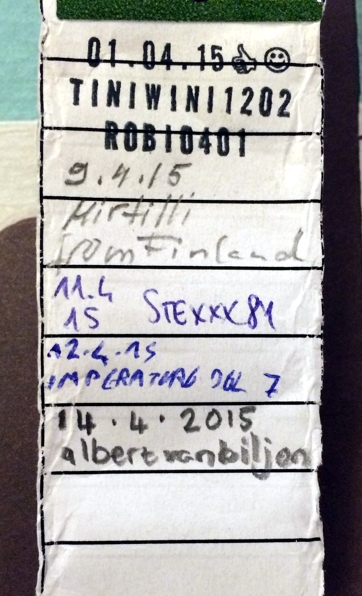 01.04.15👍☺
TINIWINI1202
ROBI0401
9.4.15
Mirtilli
from Finland
11.4
15 STEXXX84
12.4.15
IMPERATORE DEL 7
14.4.2015
albertvanbiljon